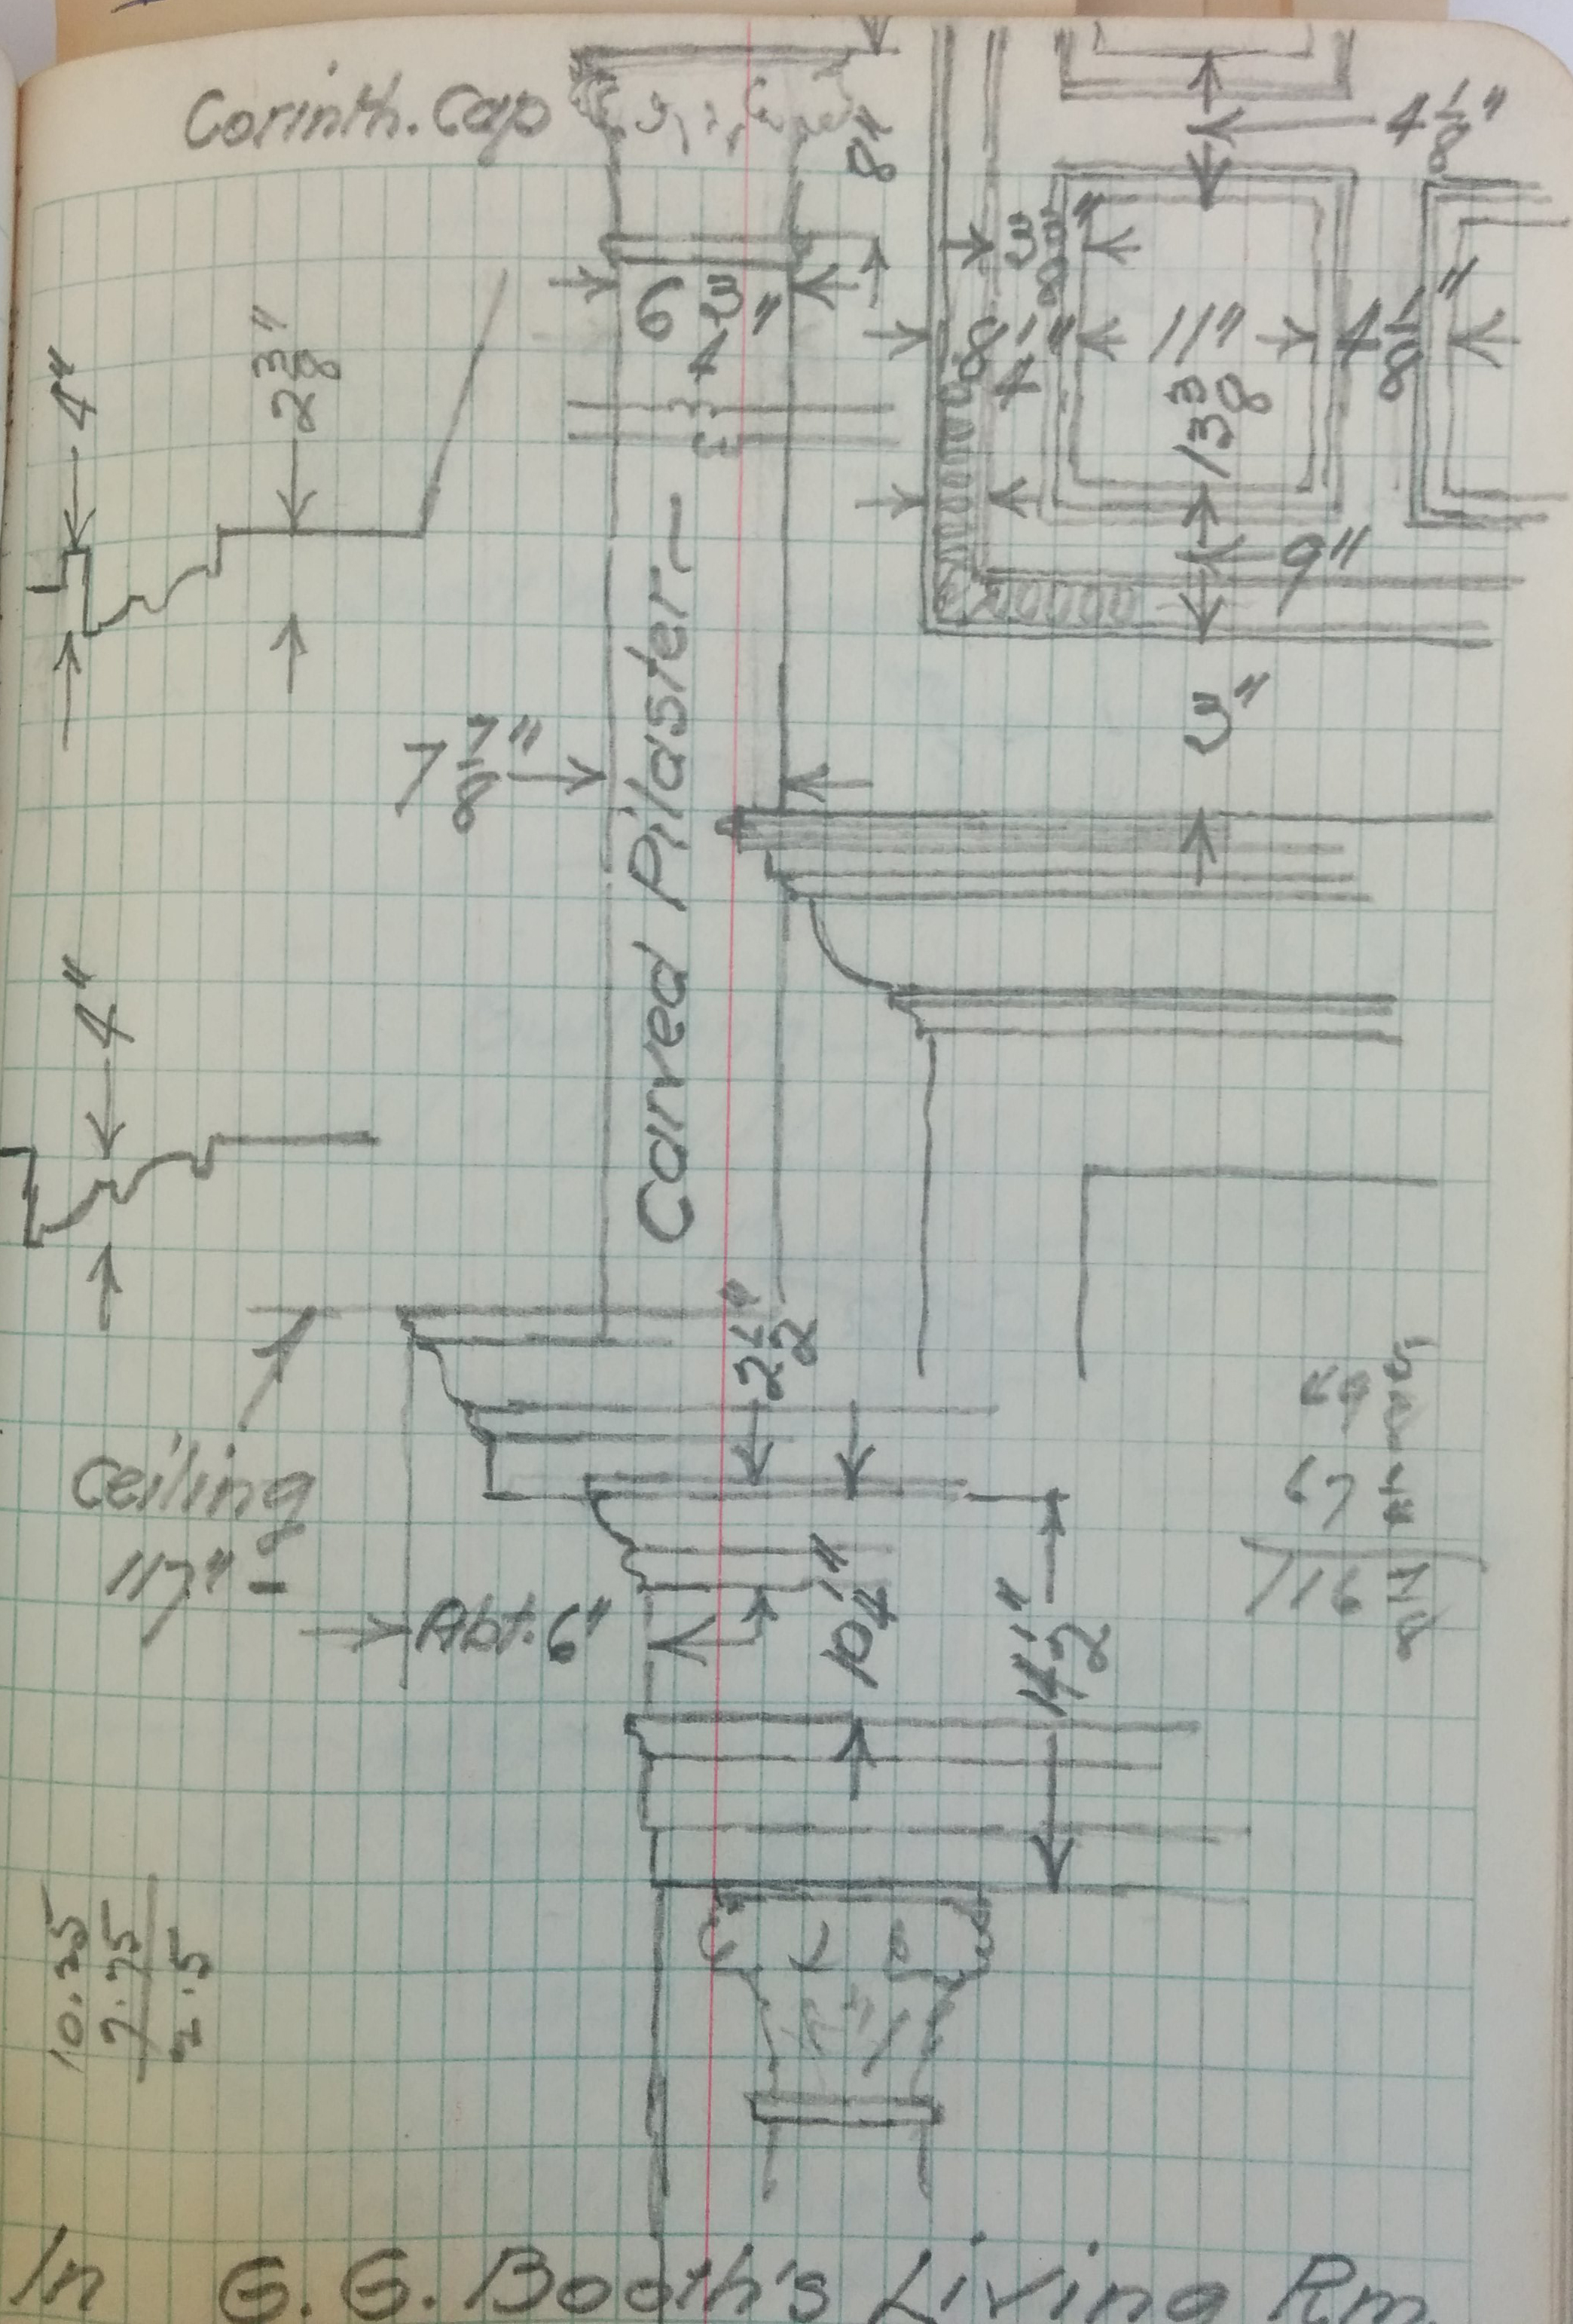 Corinth. Cap
8"
4 1/8"
3 3/8"
6 3/4"
8 1/4"
11"
4 1/8"
13 3/8
9"
4"
2 3/8"
3"
7 7/8"
Carved Pilaster
4"
2 1/2"
Ceiling
117"
Abt. 6"
10 1/4"
67
116 11/8
10.25
7.75
2.5
In G. G. Booth's Living Rm